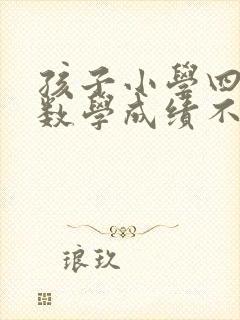 孩子小學四
数學成绩不
琅玖